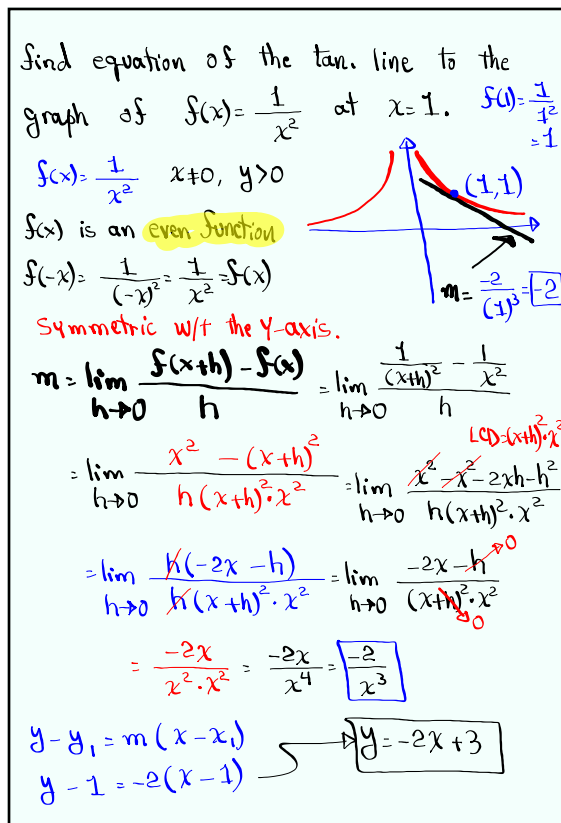 find equation of the tan. line to the
graph of f(x)= 1/x² at x=1. f(1)= 1/1²
=1
f(x)= 1/x² x≠0, y>0
(1,1)
f(x) is an even function
f(-x)= 1/(-x)² = 1/x² =f(x)
m= -2/(1)³ = -2
Symmetric w/t the Y-axis.
m = lim h→0 (f(x+h) - f(x))/h = lim h→0 (1/(x+h)² - 1/x²)/h
LCD=(x+h)²·x²
= lim h→0 (x² - (x+h)²)/(h(x+h)²·x²) = lim h→0 (x² - x² - 2xh - h²)/(h(x+h)²·x²)
= lim h→0 (h(-2x - h))/(h(x+h)²·x²) = lim h→0 (-2x - h)/((x+h)²·x²)
0
0
= -2x/(x²·x²) = -2x/x⁴ = -2/x³
y - y₁ = m(x - x₁)
y - 1 = -2(x - 1)
y = -2x + 3